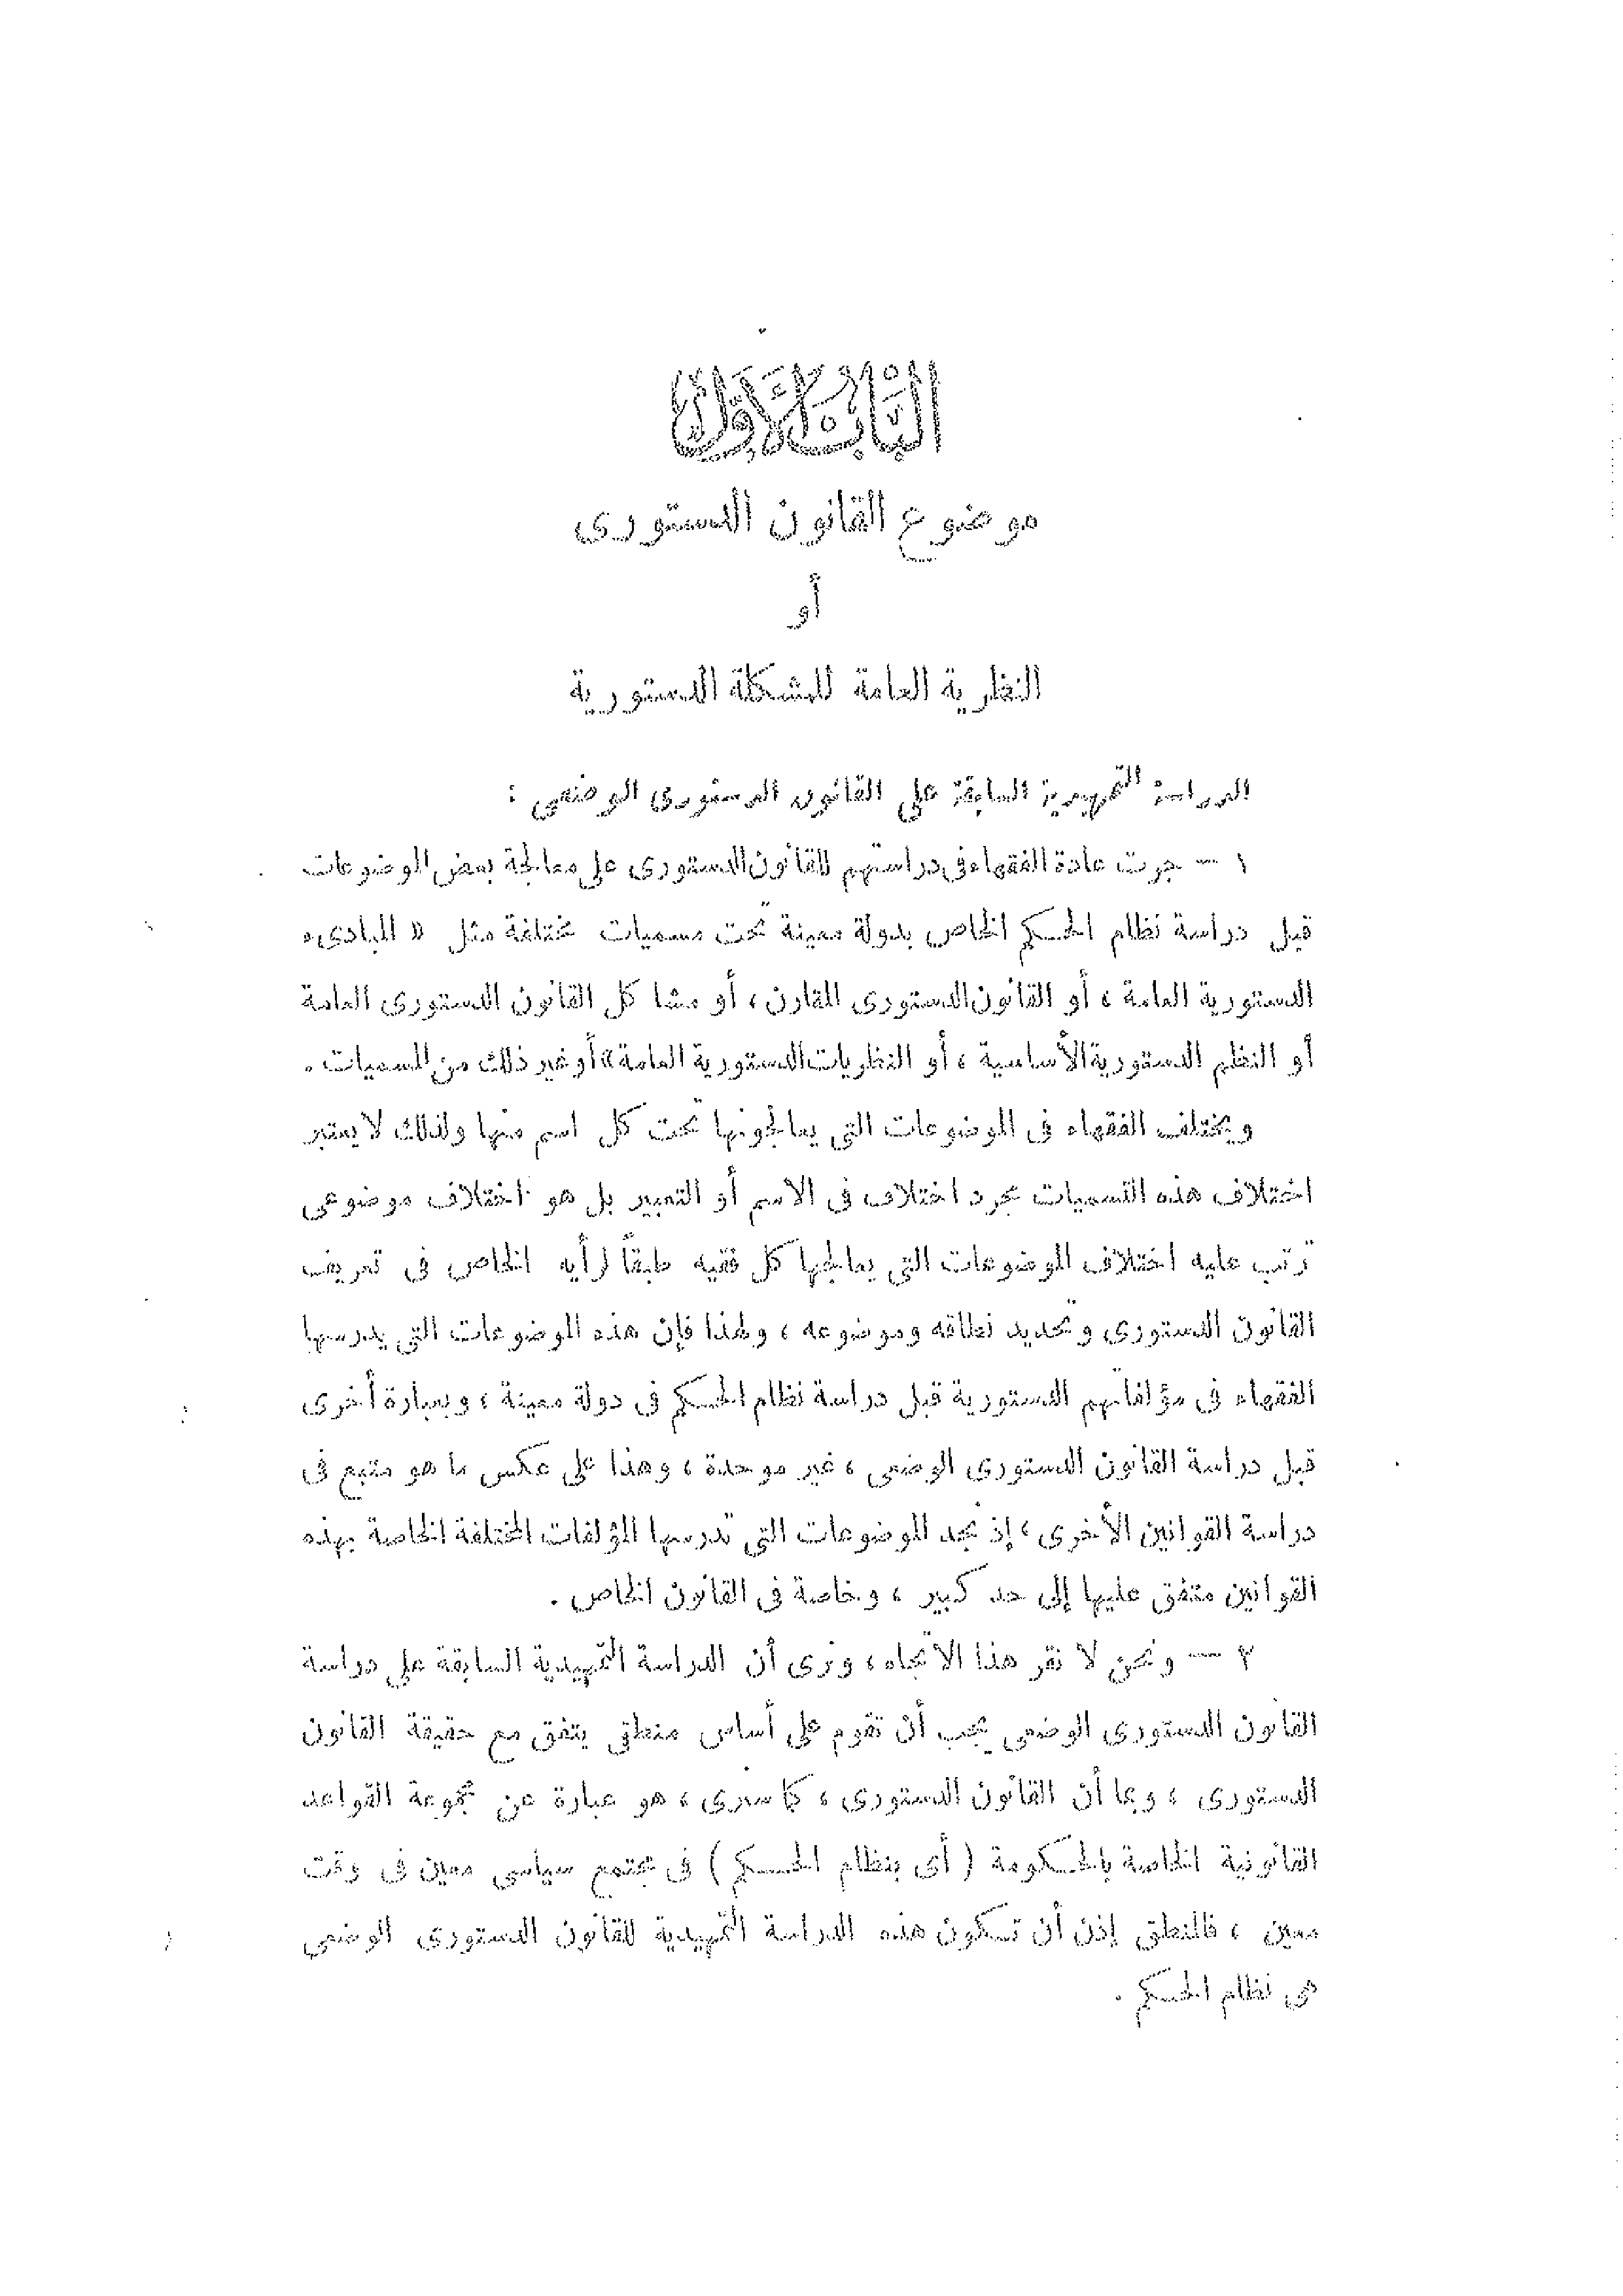 الباب الأول
موضوع القانون الدستورى
أو
النظرية العامة للمشكلة الدستورية
الدراسة التمهيدية السابقة على القانون الدستورى الوضعى :
١ — جرت عادة الفقهاء فى دراستهم للقانون الدستورى على معالجة بعض الموضوعات
قبل دراسة نظام الحكم الخاص بدولة معينة تحت مسميات مختلفة مثل « المبادىء
الدستورية العامة ، أو القانون الدستورى المقارن ، أو مشاكل القانون الدستورى العامة
أو النظم الدستورية الأساسية ، أو النظريات الدستورية العامة » أو غير ذلك من المسميات .
ويختلف الفقهاء فى الموضوعات التى يعالجونها تحت كل اسم منها ولذلك لا يعتبر
اختلاف هذه التسميات مجرد اختلاف فى الاسم أو التعبير بل هو اختلاف موضوعى
ترتب عليه اختلاف الموضوعات التى يعالجها كل فقيه طبقاً لرأيه الخاص فى تعريف
القانون الدستورى وتحديد نطاقه وموضوعه ، ولهذا فإن هذه الموضوعات التى يدرسها
الفقهاء فى مؤلفاتهم الدستورية قبل دراسة نظام الحكم فى دولة معينة ، وبعبارة أخرى
قبل دراسة القانون الدستورى الوضعى ، غير موحدة ، وهذا على عكس ما هو متبع فى
دراسة القوانين الأخرى ، إذ نجد الموضوعات التى تدرسها المؤلفات المختلفة الخاصة بهذه
القوانين متفق عليها إلى حد كبير ، وخاصة فى القانون الخاص .
٢ — ونحن لا نقر هذا الاتجاه ، ونرى أن الدراسة التمهيدية السابقة على دراسة
القانون الدستورى الوضعى يجب أن تقوم على أساس منطقى يتفق مع حقيقة القانون
الدستورى ، وبما أن القانون الدستورى ، كما سنرى ، هو عبارة عن مجموعة القواعد
القانونية الخاصة بالحكومة ( أى بنظام الحكم ) فى مجتمع سياسى معين فى وقت
معين ، فالمنطق إذن أن تكون هذه الدراسة التمهيدية للقانون الدستورى الوضعى
هى نظام الحكم .